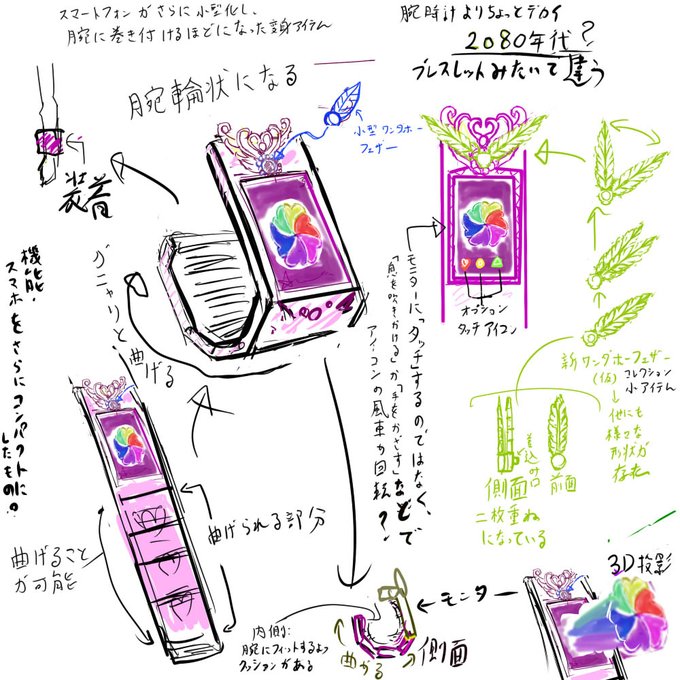 スマートフォンがさらに小型化し、
腕に巻き付けるほどになった変身アイテム
腕時計よりちょっとデカイ
2080年代?
ブレスレットみたいで違う
腕輪状になる
小型ワンダホー
フェザー
装着
機能:
スマホをさらにコンパクトに
したもの。
グニャリと、
曲げる
モニターに「タッチ」するのではなく、
「息を吹きかける」か「手をかざす」などで
アイコンの風車が回転?
オプション
タッチアイコン
新ワンダホーフェザー
(仮)
コレクション
小アイテム
他にも
様々な
形状が
存在
差込み口
側面
前面
二枚重ね
になっている
曲げられる部分
曲げること
が可能
内側:
腕にフィットするよう
クッションがある
曲がる
側面
モニター
3D投影